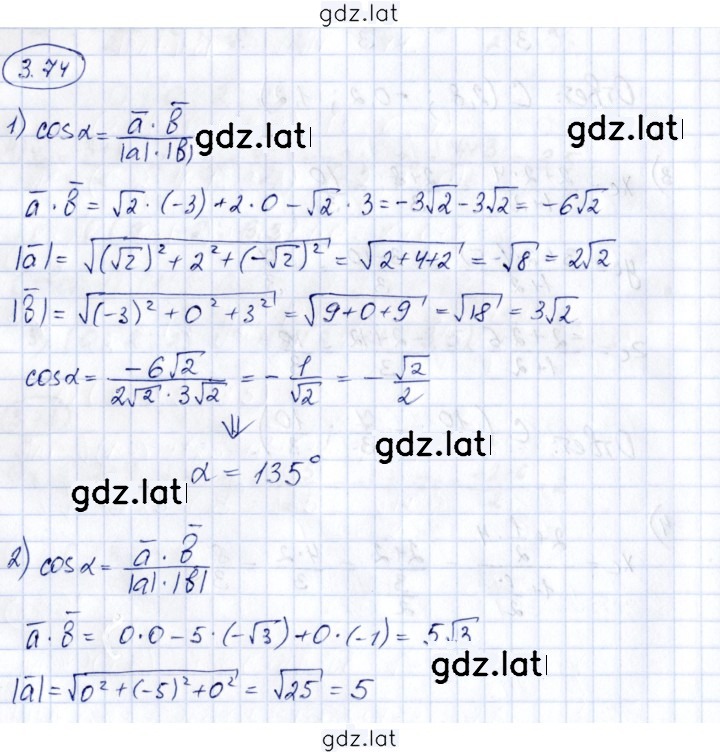 gdz.lat
3.74
1) cosα = a̅ · b̅ / |a| · |b| gdz.lat gdz.lat
a̅ · b̅ = √2 · (-3) + 2 · 0 - √2 · 3 = -3√2 - 3√2 = -6√2
|a̅| = √((√2)² + 2² + (-√2)²) = √(2+4+2) = √8 = 2√2
|b̅| = √((-3)² + 0² + 3²) = √(9+0+9) = √18 = 3√2
cosα = -6√2 / 2√2 · 3√2 = - 1/√2 = - √2/2
⇓ gdz.lat
α = 135°
gdz.lat
2) cosα = a̅ · b̅ / |a| · |b|
a̅ · b̅ = 0·0 - 5 · (-√3) + 0 · (-1) = 5√3
gdz.lat
|a̅| = √(0² + (-5)² + 0²) = √25 = 5
gdz.lat